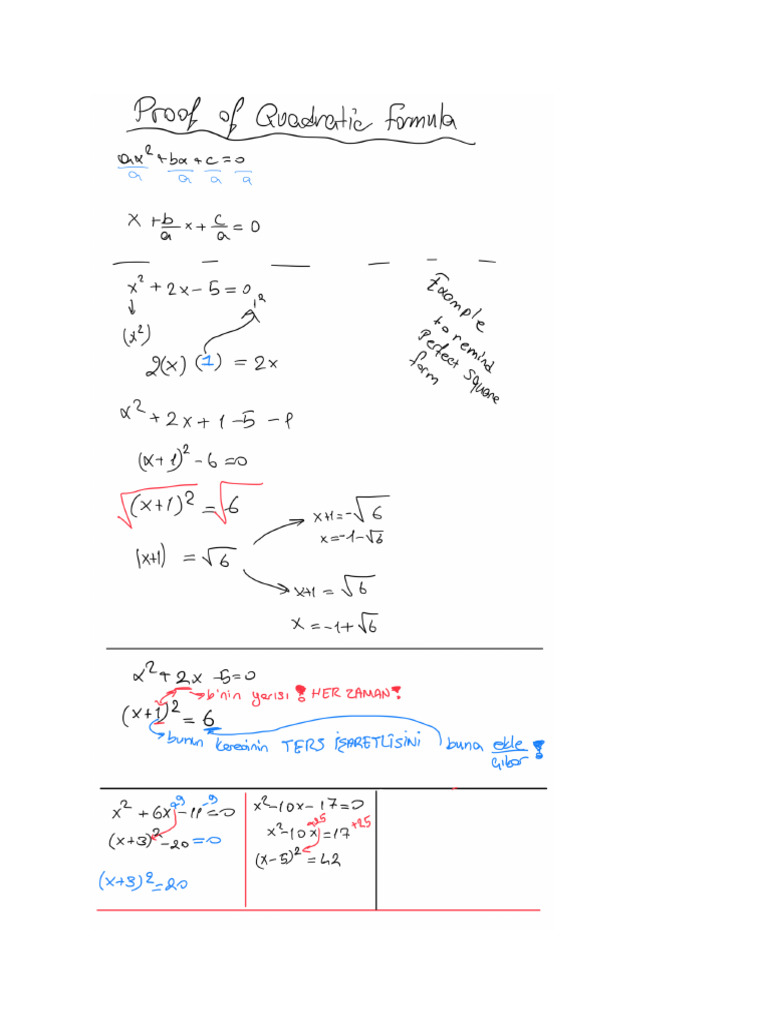 Proof of Quadratic Formula
ax² + bx + c = 0
a a a a
x + b/a x + c/a = 0
x² + 2x - 5 = 0
Example
to remind
Perfect square
form
(x²)
2(x) (1) = 2x
x² + 2x + 1 - 5 - 1
(x+1)² - 6 = 0
√(x+1)² = √6
x+1 = -√6
x = -1 - √6
(x+1) = √6
x+1 = √6
x = -1 + √6
x² + 2x - 5 = 0
b'nin yarısı ! HER ZAMAN !
(x+1)² = 6
bunun karesinin TERS İŞARETLİSİNİ buna ekle
çıkar !
x² + 6x +9 - 11 -9 = 0
(x+3)² - 20 = 0
(x+3)² = 20
x² - 10x - 17 = 0
x² - 10x +25 = 17 +25
(x-5)² = 42